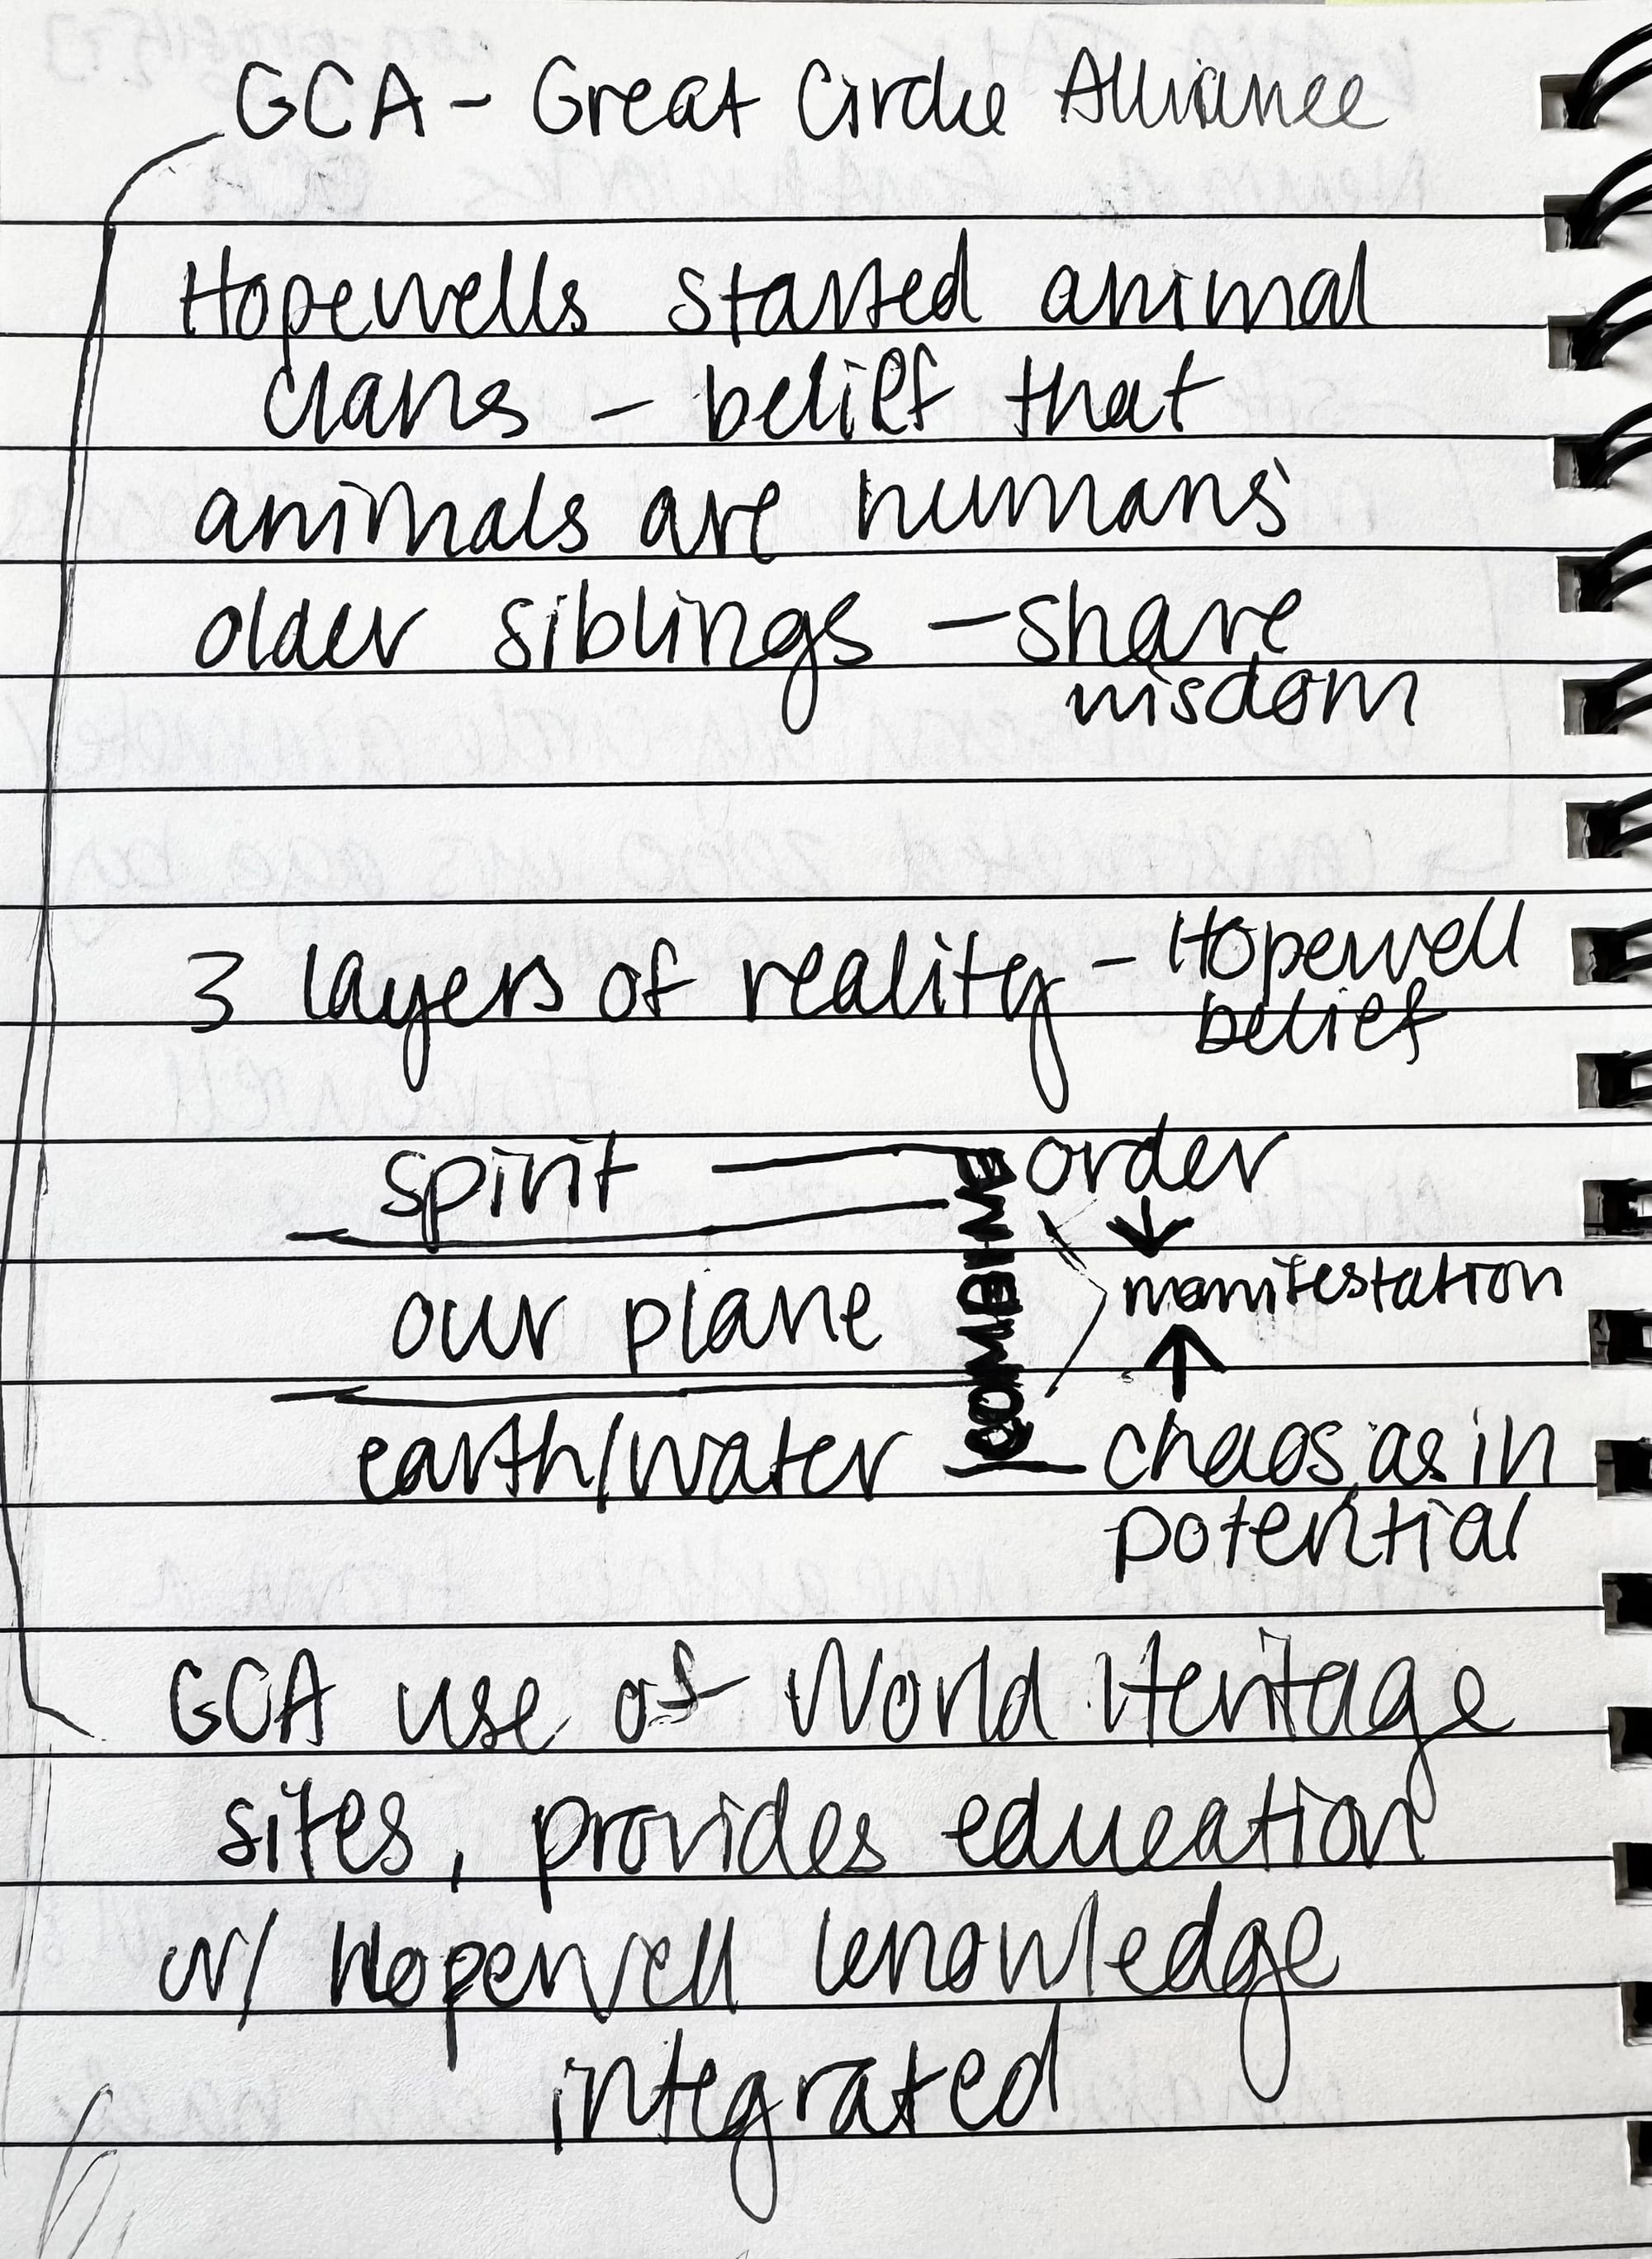 GCA - Great Circle Alliance
Hopewells started animal
clans - belief that
animals are humans'
older siblings - share
wisdom
3 layers of reality - Hopewell
belief
spirit
order
our plane
COMBINE
manifestation
earth/water
chaos, as in
potential
GCA use of World Heritage
sites, provides education
w/ Hopewell knowledge
integrated